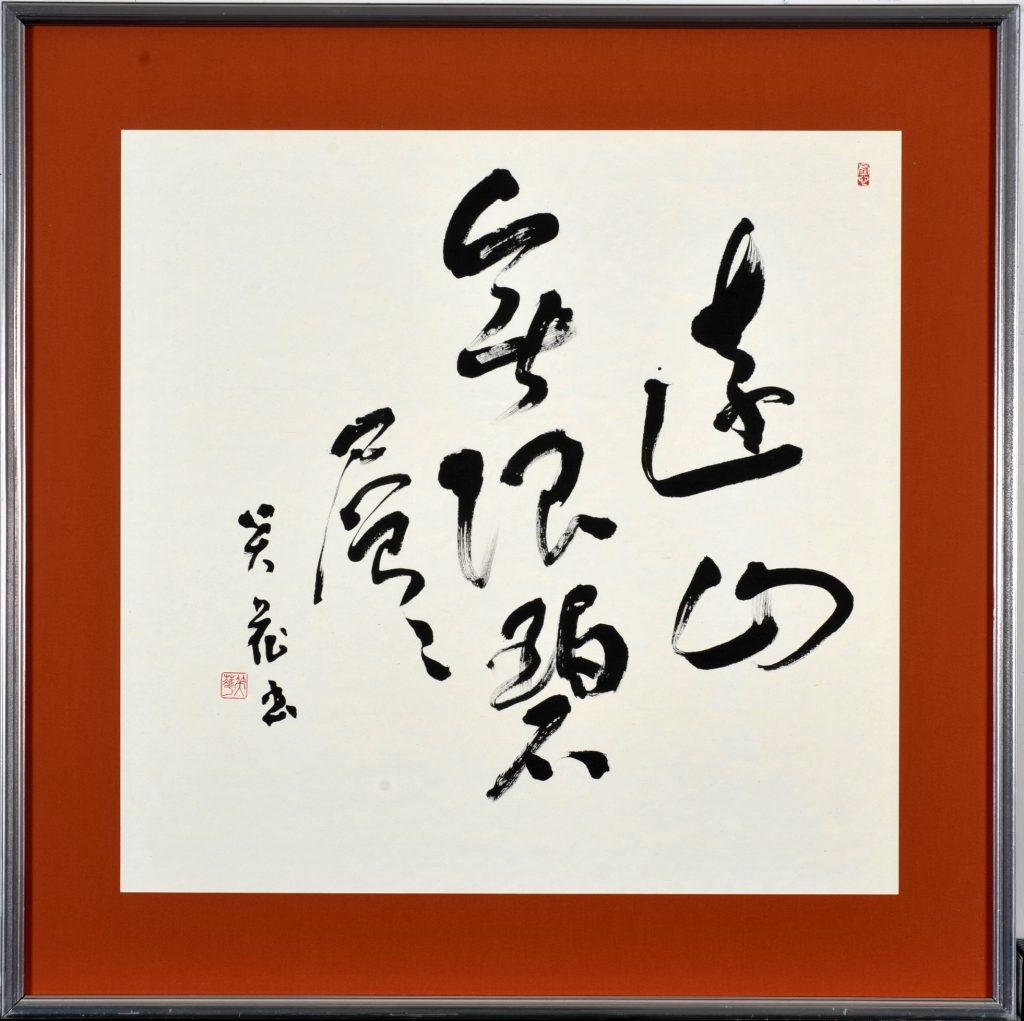 遠山
無限碧
層々
笑花書